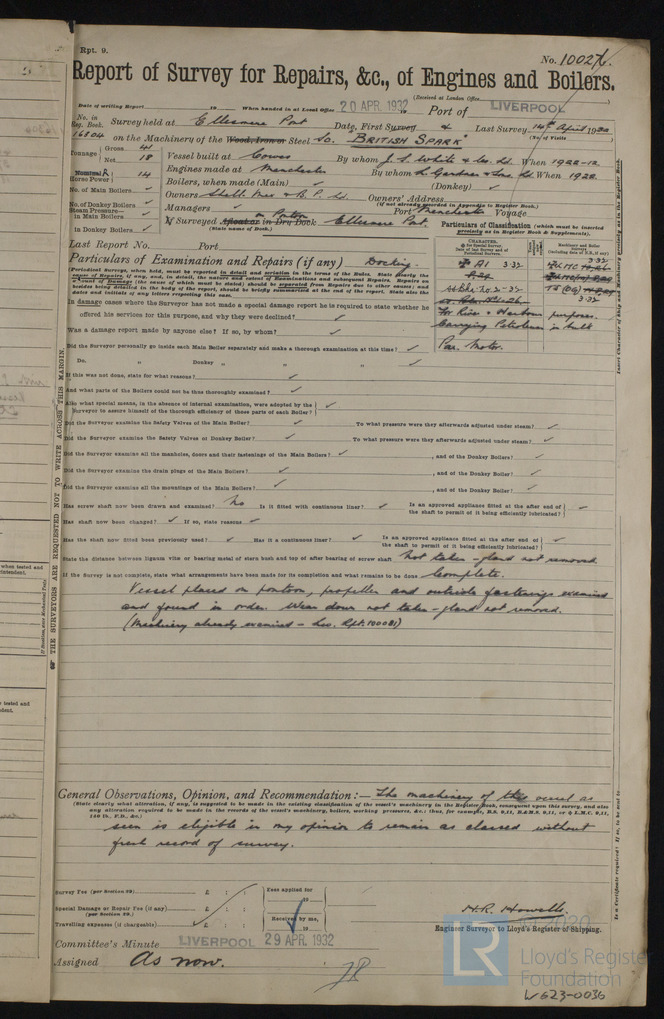 Rpt. 9.
No. 10027
Report of Survey for Repairs, &c., of Engines and Boilers.
(Received at London Office
Date of writing Report 19 When handed in at Local Office 20 APR. 1932 19 Port of LIVERPOOL
No. in Reg. Book. Survey held at Ellesmere Port Date, First Survey & Last Survey 14th April 1932
16804 on the Machinery of the Wood, Iron or Steel Sc. BRITISH SPARK (No. of Visits
Tonnage Gross 41
Net 18
Vessel built at Cowes By whom J. S. White & Co. Ld. When 1922-12
Engines made at Manchester By whom L. Gardner & Sons Ld. When 1922
Nominal Horse Power 14
Boilers, when made (Main) ✓ (Donkey) ✓
No. of Main Boilers ✓
Owners Shell Mex & B.P. Ld. Owners' Address
(if not already recorded in Appendix to Register Book.)
No. of Donkey Boilers ✓
Managers ✓ Port Manchester Voyage
Steam Pressure—
in Main Boilers ✓
If Surveyed Afloat or in Dry Dock on Ponton Ellesmere Port.
(State name of Dock.)
in Donkey Boilers ✓
Particulars of Classification (which must be inserted precisely as in Register Book & Supplements).
Last Report No. Port
Particulars of Examination and Repairs (if any) Docking.
CHARACTER.
3.32
For River & Harbour purposes.
Carrying Petroleum in bulk
Par. Motor.
(Periodical Surveys, when held, must be reported in detail and seriatim in the terms of the Rules.
In damage cases where the Surveyor has not made a special damage report he is required to state whether he
offered his services for this purpose, and why they were declined? ✓
Was a damage report made by anyone else? If so, by whom? ✓
Did the Surveyor personally go inside each Main Boiler separately and make a thorough examination at this time? ✓
Do. " Donkey " " " ✓
If this was not done, state for what reasons? ✓
And what parts of the Boilers could not be thoroughly examined? ✓
Also what special means, in the absence of internal examination, were adopted by the
Surveyor to assure himself of the thorough efficiency of those parts of each Boiler? ✓
Did the Surveyor examine the Safety Valves of the Main Boiler? ✓ To what pressure were they afterwards adjusted under steam? ✓
Did the Surveyor examine the Safety Valves of Donkey Boiler? ✓ To what pressure were they afterwards adjusted under steam? ✓
Did the Surveyor examine all the manholes, doors and their fastenings of the Main Boilers? ✓ , and of the Donkey Boilers? ✓
Did the Surveyor examine the drain plugs of the Main Boilers? ✓ , and of the Donkey Boiler? ✓
Did the Surveyor examine all the mountings of the Main Boilers? ✓ , and of the Donkey Boiler? ✓
Has screw shaft now been drawn and examined? No Is it fitted with continuous liner? ✓ Is an approved appliance fitted at the after end of the shaft to permit of it being efficiently lubricated? ✓
Has shaft now been changed? ✓ If so, state reasons ✓
Has the shaft now fitted been previously used? ✓ Has it a continuous liner? ✓ Is an approved appliance fitted at the after end of the shaft to permit of it being efficiently lubricated? ✓
State the distance between lignum vitæ or bearing metal of stern bush and top of after bearing of screw shaft Not taken - gland not removed
If the Survey is not complete, state what arrangements have been made for its completion and what remains to be done Complete.
Vessel placed on ponton, propeller and outside fastenings examined
and found in order. Wear down not taken - gland not removed.
(Machinery already examined - Liv. Rpt. 100081)
THE SURVEYORS ARE REQUESTED NOT TO WRITE ACROSS THIS MARGIN.
General Observations, Opinion, and Recommendation:— The machinery of this vessel as
(State clearly what alteration, if any, is suggested to be made in the existing classification of the vessel's machinery in the Register Book, consequent upon this survey, and also
any alteration required to be made in the records of the vessel's machinery, boilers, working pressures, &c.; thus, for example, B.S. 9,11, B.&M.S. 9,11, or L.M.C. 9,11,
140 lb., F.D., &c.)
seen is eligible in my opinion to remain as classed without
fresh record of survey.
Survey Fee (per Section 29) £ : :
Special Damage or Repair Fee (if any)
(per Section 29.) £ : :
Travelling expenses (if chargeable) £ : :
Fees applied for
19
Received by me,
19
H.R. Howells.
Engineer Surveyor to Lloyd's Register of Shipping.
Committee's Minute LIVERPOOL 29 APR. 1932
Assigned As now.
© 2020
LR
Lloyd's Register
Foundation
W623-0036